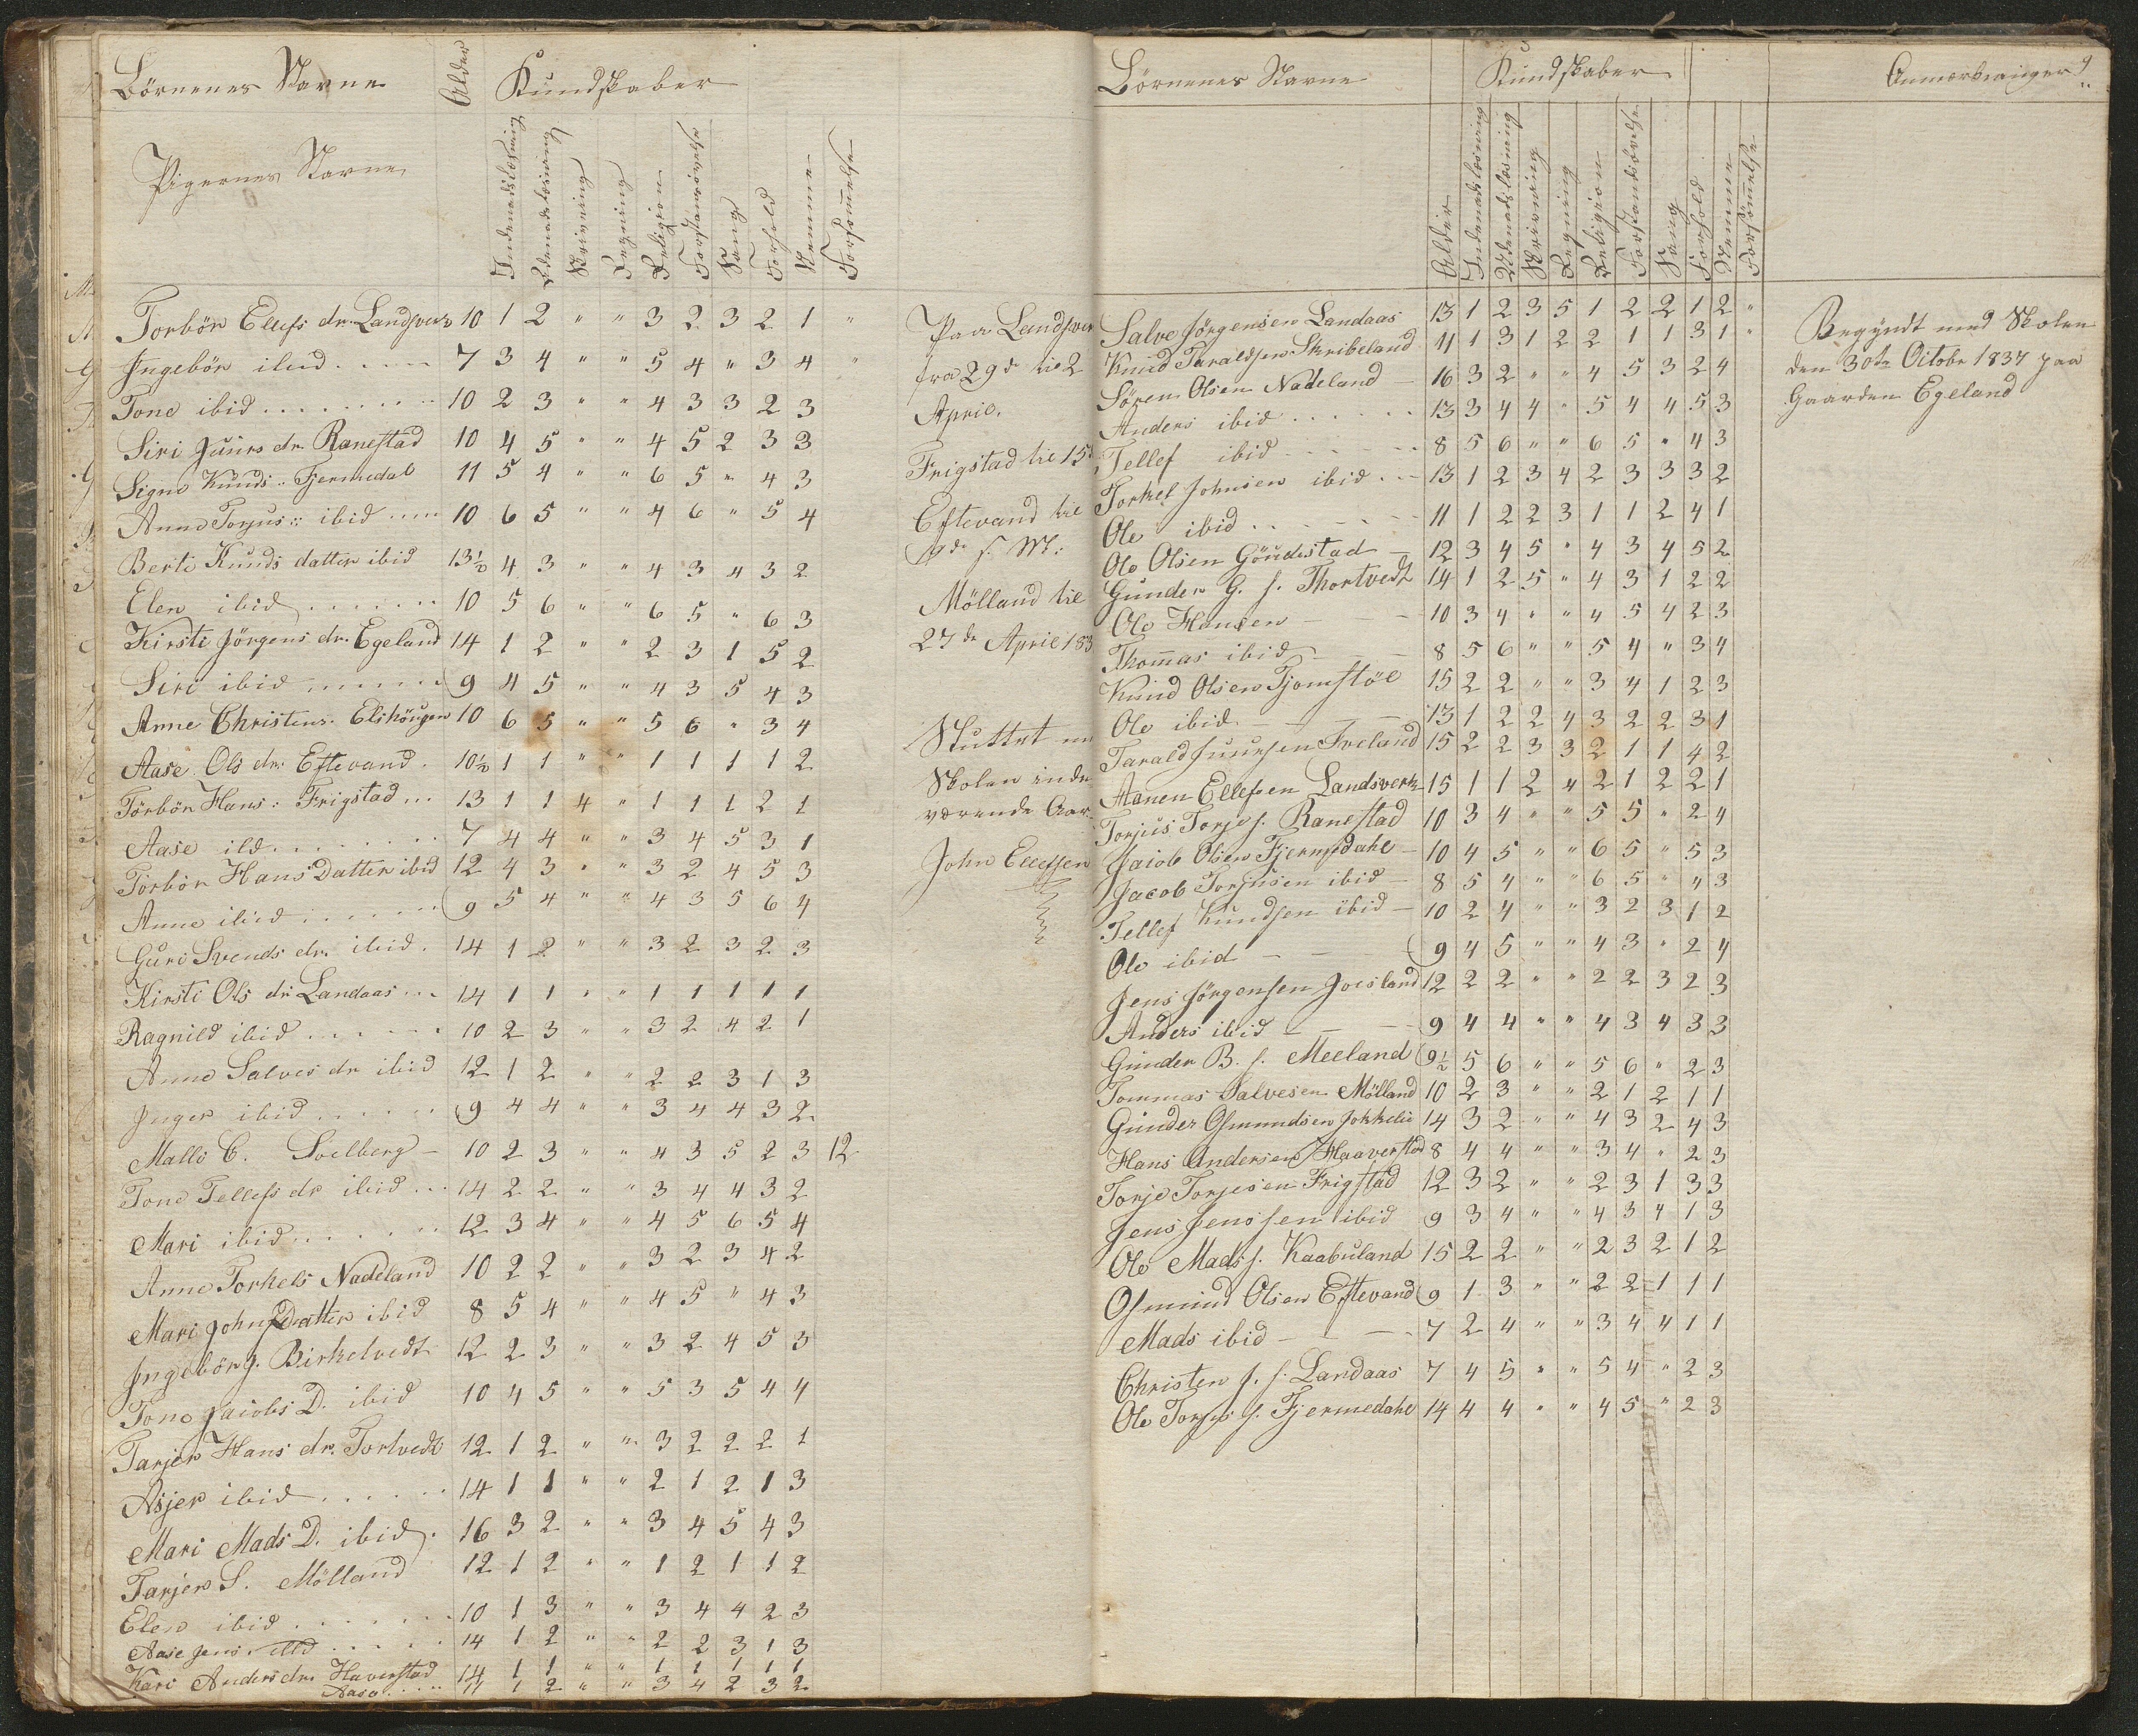 Börnenes Navne Alder Kundskaber
Pigernes Navne Indenadslæsning Udenadslæsning Skrivning Regning Religion Forstandsøvelse Sang Forhold Nemme Forsømmelse
Torbör Ellefs dr. Landsverk 10 1 2 " " 3 2 3 2 1 "
Ingebör ibid 7 3 4 " " 5 4 " 3 4 "
Tone ibid 10 2 3 " " 4 3 3 2 3
Siri Juurs dr. Ranestad 10 4 5 " " 4 5 2 3 3
Signe Knuds " Fjermedal 11 5 4 " " 6 5 " 4 3
Anne Torjus :: ibid 10 6 5 " " 4 6 " 5 4
Berte Knuds datter ibid 13½ 4 3 " " 4 3 4 3 2
Elen ibid 10 5 6 " " 6 5 " 6 3
Kirsti Jörgens dr. Egeland 14 1 2 " " 2 3 1 5 2
Siri ibid 9 4 5 " " 4 3 5 4 3
Anne Christens. Elshöugen 10 6 5 " " 5 6 " 3 4
Aase Ols dr. Eftevand 10½ 1 1 " " 1 1 1 1 2
Törbör Hans : Frigstad 13 1 1 4 " 1 1 1 2 1
Aase ibd 7 4 4 " " 3 4 5 3 1
Törbör Hans Datter ibid 12 4 3 " " 3 2 4 5 3
Anne ibid 9 5 4 " " 4 3 5 6 4
Guri Svends dr. ibid 14 1 2 " " 3 2 3 2 3
Kirsti Ols dr Landaas 14 1 1 " " 1 1 1 1 1
Ragnild ibid 10 2 3 " " 3 2 4 2 1
Anne Salves dr ibid 12 1 2 " " 2 2 3 1 3
Inger ibid 9 4 4 " " 3 4 4 3 2
Malle C. Soelberg 10 2 3 " " 4 3 5 2 3 12
Tone Tellefs dr ibid 14 2 2 " " 3 4 4 3 2
Mari ibid 12 3 4 " " 4 5 6 5 4
Anne Torkels Nadeland 10 2 2 " " 3 2 3 4 2
Mari Johns Datter ibid 8 5 4 " " 4 5 " 4 3
Ingebör J. Birkelvedt 12 2 3 " " 3 2 4 5 3
Tone Jacobs D. ibid 10 4 5 " " 5 3 5 4 4
Tarjer Hans dr. Tortvedt 12 1 2 " " 3 2 2 2 1
Asjer ibid 14 1 1 " " 2 1 2 1 3
Mari Mads D. ibid 16 3 2 " " 3 4 5 4 3
Tarjer S. Mölland 12 1 2 " " 1 2 1 1 2
Elen ibid 10 1 3 " " 3 4 4 2 3
Aase Jens. ibd 14 1 2 " " 2 2 3 1 3
Kari Anders dr. Haverstad 14 1 1 " " 1 1 1 1 1
Aase 11 1 2 " " 3 4 2 3 2
Paa Landsver
fra 29de til 2
April.
Frigstad til 15d
Eftevand til
9de s. M:
Mölland til
27de April 183
Sluttet
Skolen inde
værende Aar
John Ellefsen
Börnenes Navne Kundskaber Anmærkninger 9
Alder Indenadslæsning Udenadslæsning Skrivning Regning Religion Forstandsövelse Sang Forhold Nemme Forsömmelse
Salve Jörgensen Landaas 13 1 2 3 5 1 2 2 1 2 "
Knud Taraldsen Skribeland 11 1 3 1 2 2 1 1 3 1 "
Sören Olsen Nadeland 16 3 2 " " 4 5 3 2 4
Anders ibid 13 3 4 4 " 5 4 4 5 3
Tellef ibid 8 5 6 " " 6 5 " 4 3
Torkel Johnsen ibid 13 1 2 3 4 2 3 3 3 2
Ole ibid 11 1 2 2 3 1 1 2 4 1
Ole Olsen Göudestad 12 3 4 5 " 4 3 4 5 2
Gunder G. s. Thortvedt 14 1 2 5 " 4 3 1 2 2
Ole Hansen 10 3 4 " " 4 5 4 2 3
Thomas ibid 8 5 6 " " 5 4 " 3 4
Knud Olsen Tjomstöl 15 2 2 " " 3 4 1 2 3
Ole ibid 13 1 2 2 4 3 2 2 3 1
Tarald Juursen Ireland 15 2 2 3 3 2 1 1 4 2
Aanen Ellefsen Landsverk 15 1 1 2 4 2 1 2 2 1
Torjus Torjes. Ranestad 10 3 4 " " 5 5 " 2 4
Jacob Olsen Fjermedahl 10 4 5 " " 6 5 " 5 3
Jacob Torjusen ibid 8 5 4 " " 6 5 " 4 3
Tellef Knudsen ibid 10 2 4 " " 3 2 3 1 2
Ole ibid 9 4 5 " " 4 3 " 2 4
Jens Jörgensen Joesland 12 2 2 " " 2 2 3 2 3
Anders ibid 9 4 4 " " 4 3 4 3 3
Gunder B. s. Meeland 9½ 5 6 " " 5 6 " 2 3
Tommas Salvesen Mölland 10 2 3 " " 2 1 2 1 1
Gunder Osmundsen Jokkelie 14 3 2 " " 4 3 2 4 3
Hans Andersen Haaverstad 8 4 4 " " 3 4 " 2 3
Torje Torjesen Frigstad 12 3 2 " " 2 3 1 3 3
Jens Jenssen ibid 9 3 4 " " 4 3 4 1 3
Ole Mads s. Kaabuland 15 2 2 " " 2 3 2 1 2
Osmund Olsen Eftevand 9 1 3 " " 2 2 1 1 1
Mads ibid 7 2 4 " " 3 4 4 1 1
Christen J. s. Landaas 7 4 5 " " 5 4 " 2 3
Ole Torjus s. Fjermedahl 14 4 4 " " 4 5 " 2 3
Begyndt med Skolen
den 30te Octobr 1837 paa
Gaarden Egeland